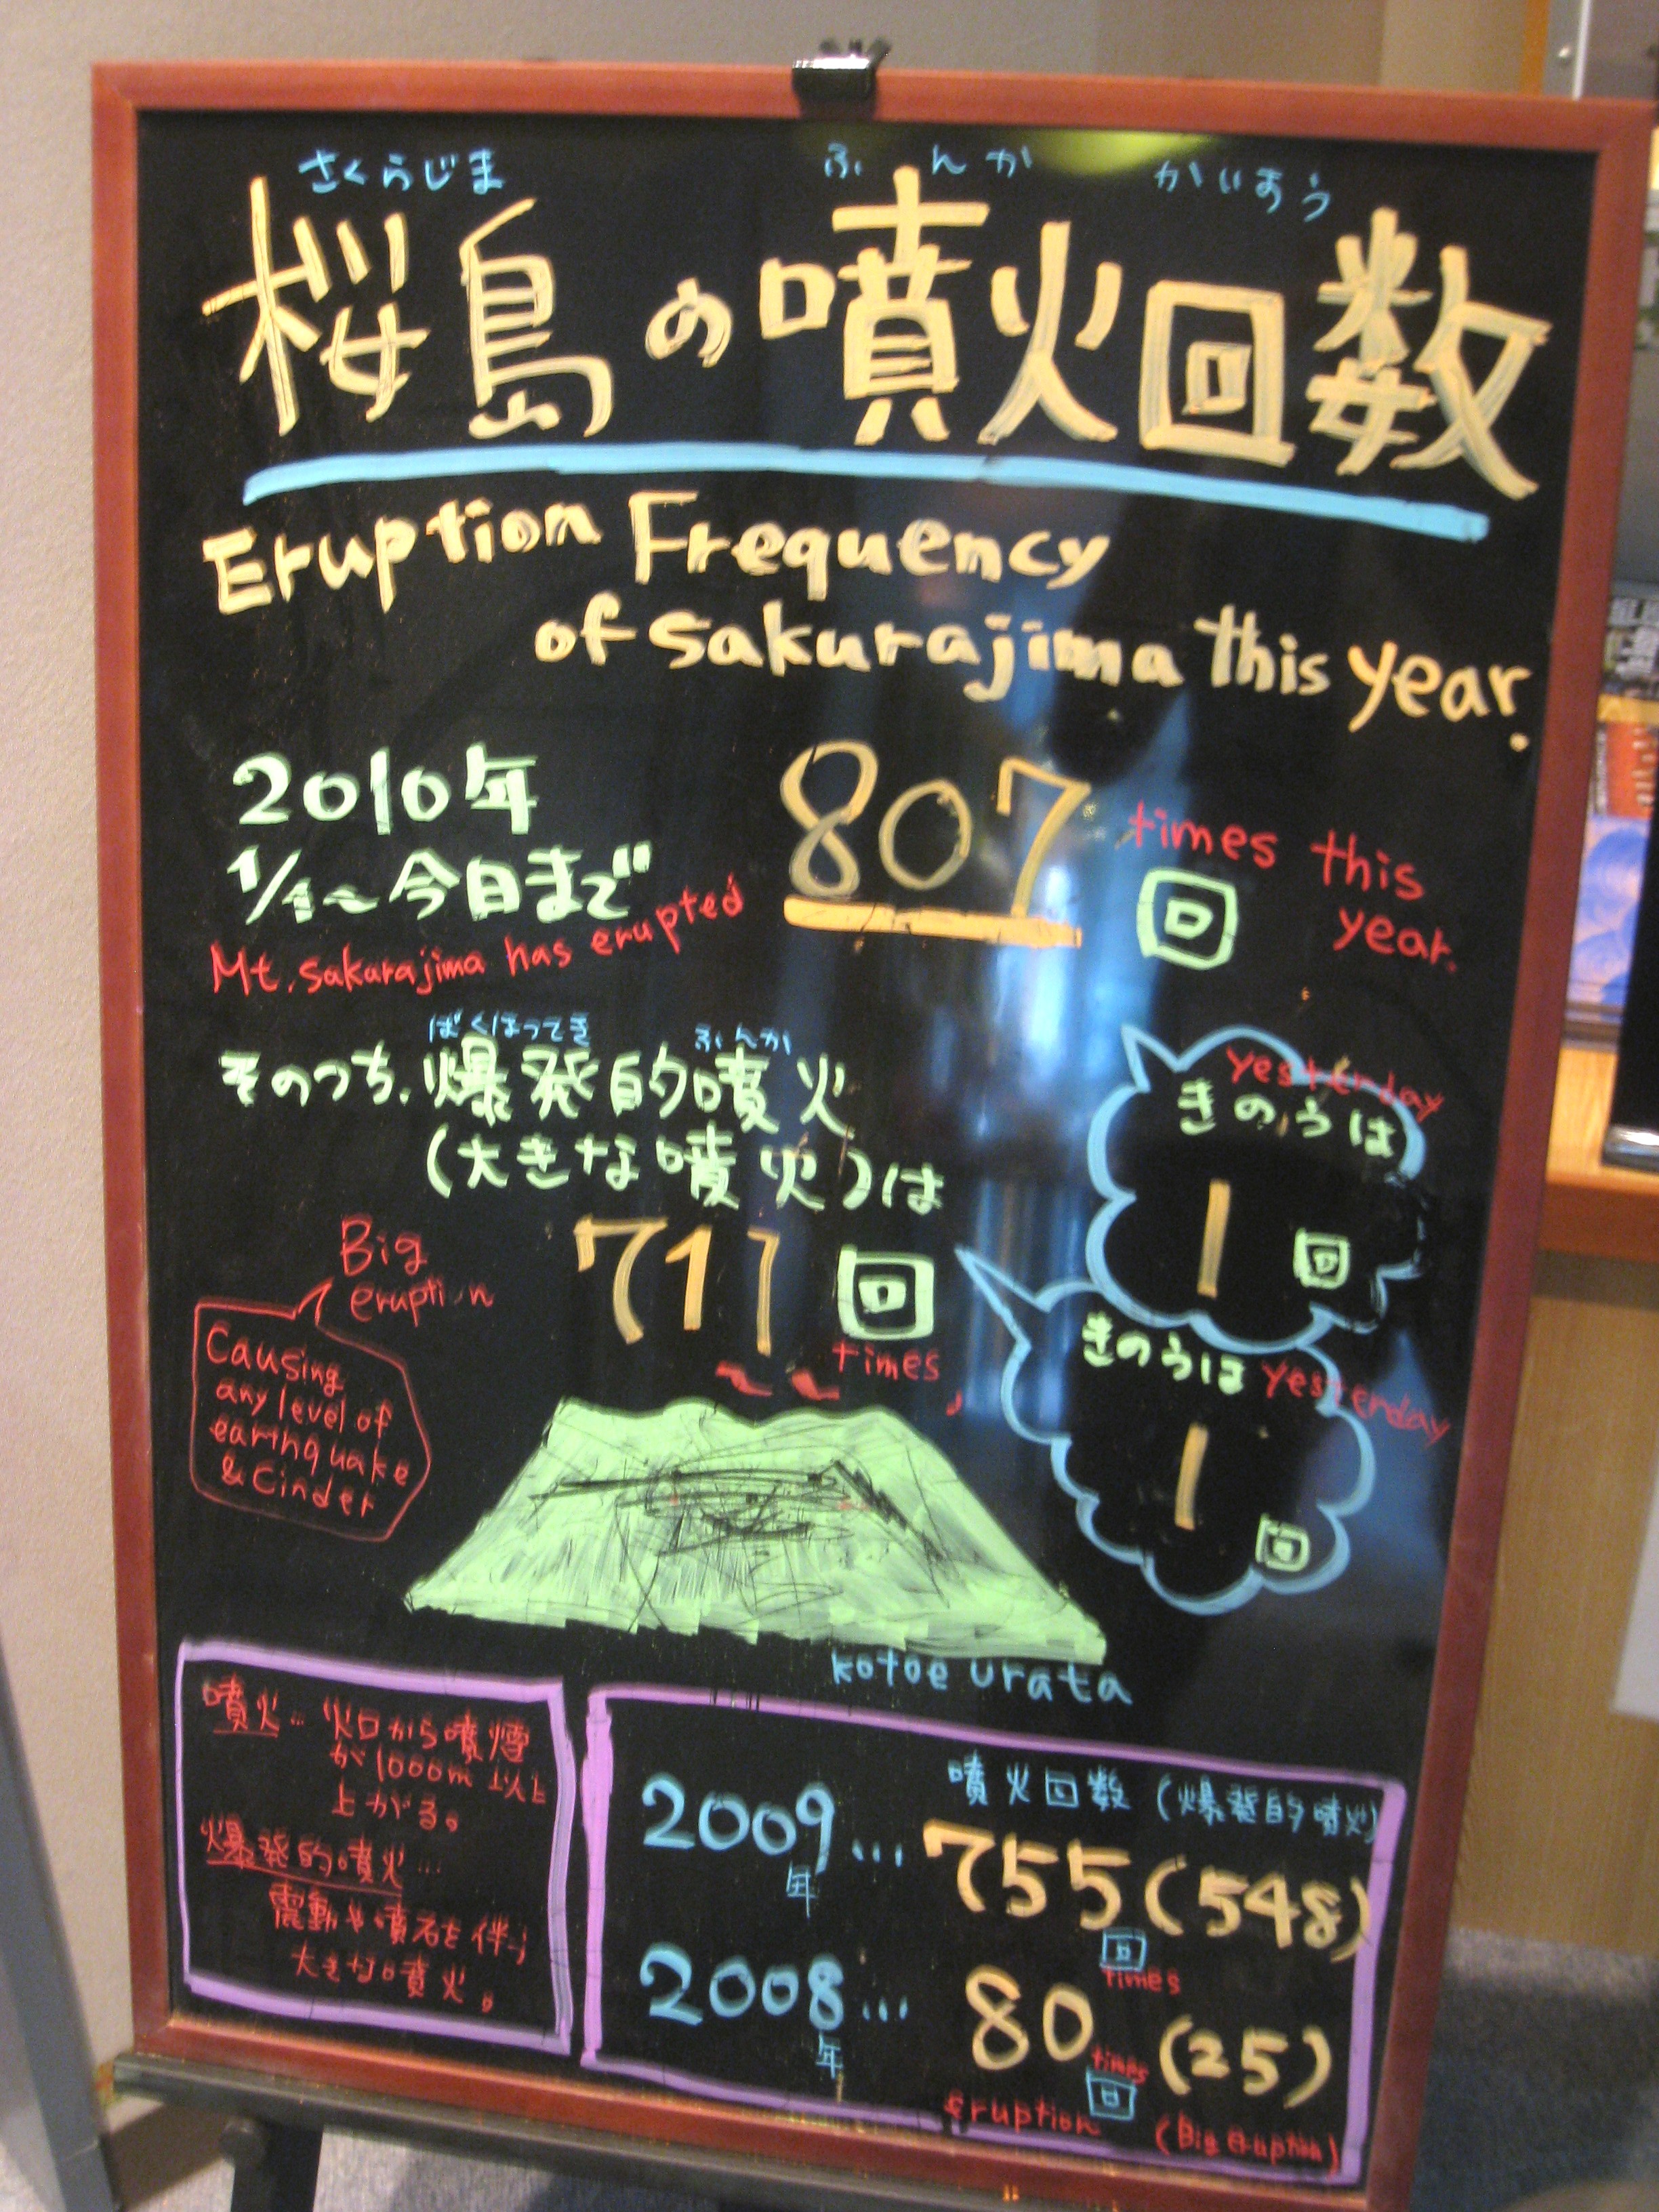 さくらじま ふんか かいすう
桜島の噴火回数
Eruption Frequency
of Sakurajima this year.
2010年
1/1～今日まで
807 回
times this
year.
Mt. Sakurajima has erupted
ばくはつてき ふんか
そのうち、爆発的噴火
(大きな噴火)は
717 回
times
Big
eruption
Causing
any level of
earthquake
& Cinder
yesterday
きのうは
1 回
きのうは yesterday
1 回
kotoe urata
噴火… 火口から噴煙
が1000m以上
上がる。
爆発的噴火…
震動や噴石を伴う
大きな噴火。
噴火回数 (爆発的噴火)
2009年… 755回 (548)
times
2008年… 80回 (25)
times
eruption (Big eruption)